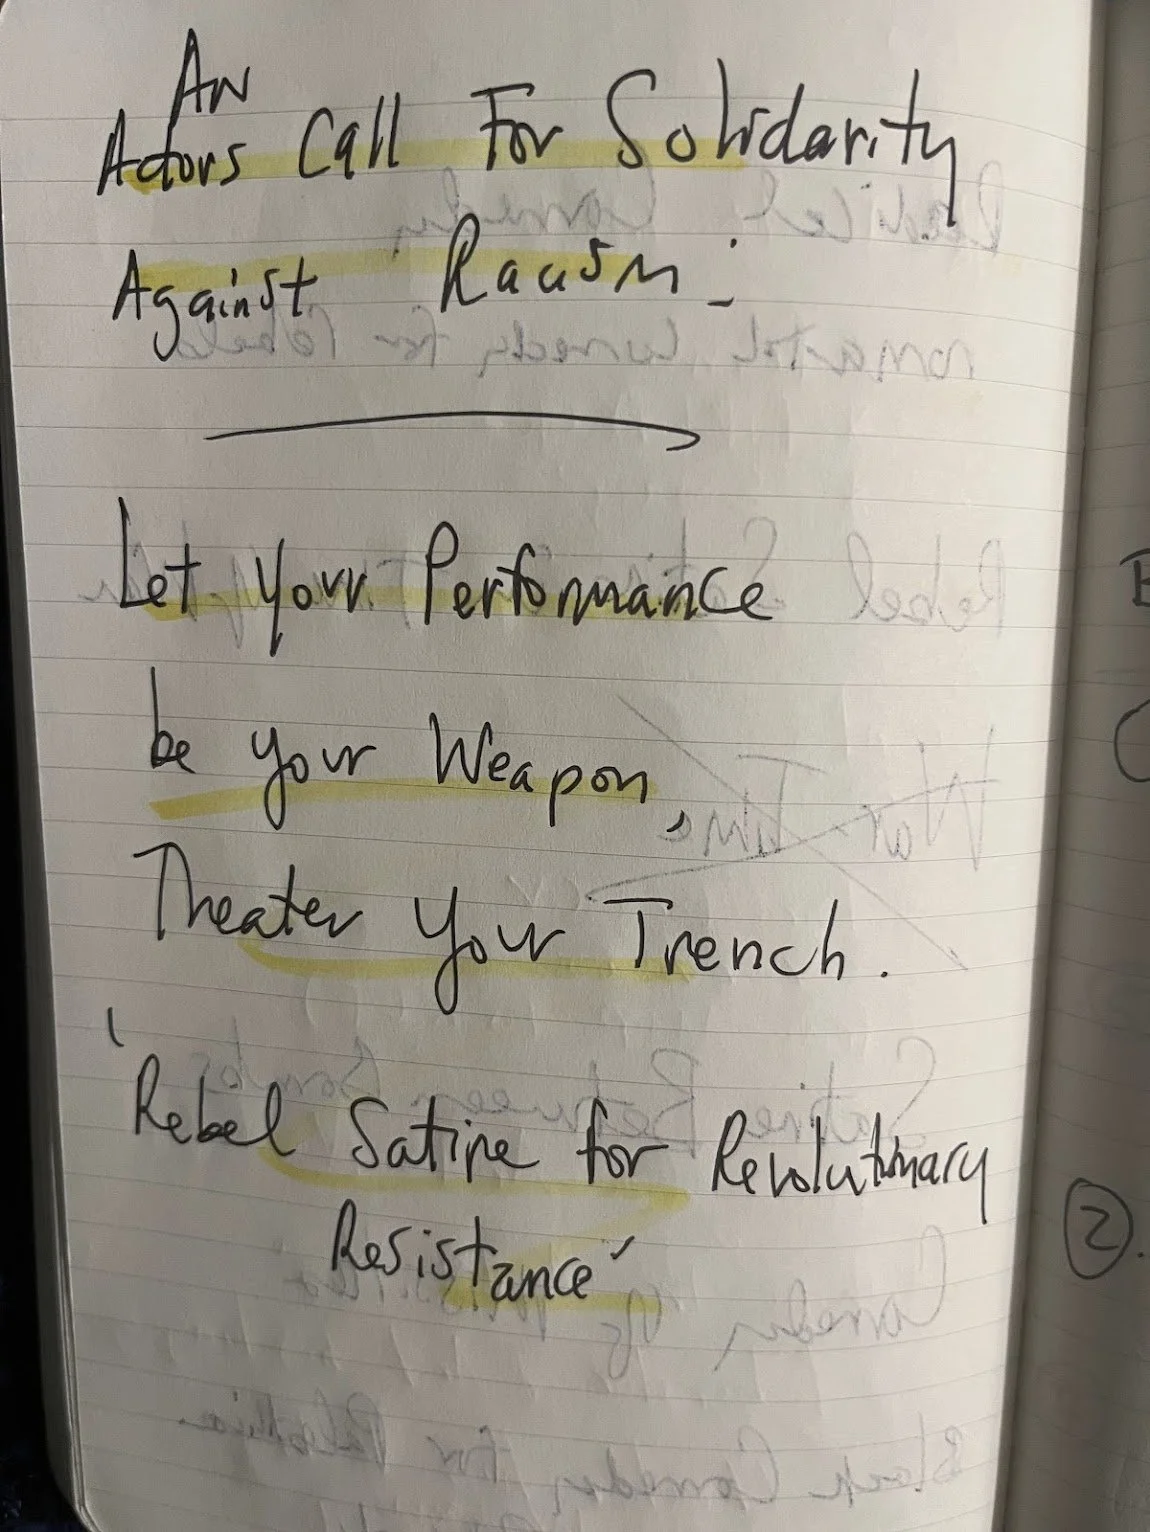 AN
Actors Call For Solidarity
Against Racism:
Let your Performance
be your Weapon,
Theater your Trench.
'Rebel Satire for Revolutionary
Resistance'
2.